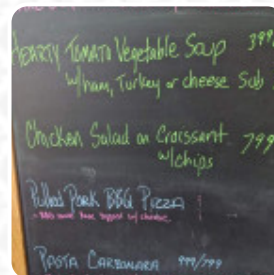 HEARTY TOMATO Vegetable Soup 399
w/ham, Turkey or cheese Sub
Chicken Salad on Croissant 799
w/chips
Pulled Pork BBQ Pizza
PASTA CARBONARA 499/799